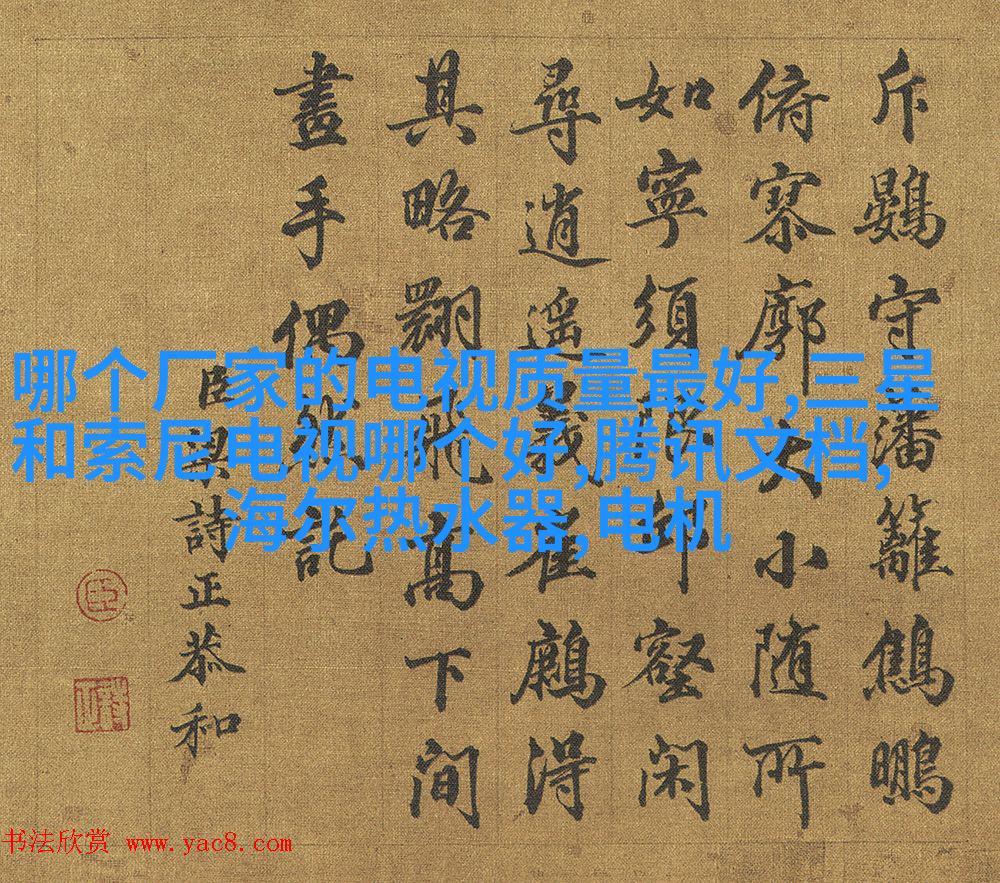 哪个厂家的电视质量最好,三星
和索尼电视哪个好,腾讯文档,
海尔热水器,电机
斥鷃守藩籬鷦鵬
俯寥廓大小随所
如寧須壑閑
尋逍遥義得
其略翺飛高下間
畫手偶記
臣梁詩正恭和
臣
书法欣赏 www.yac8.com